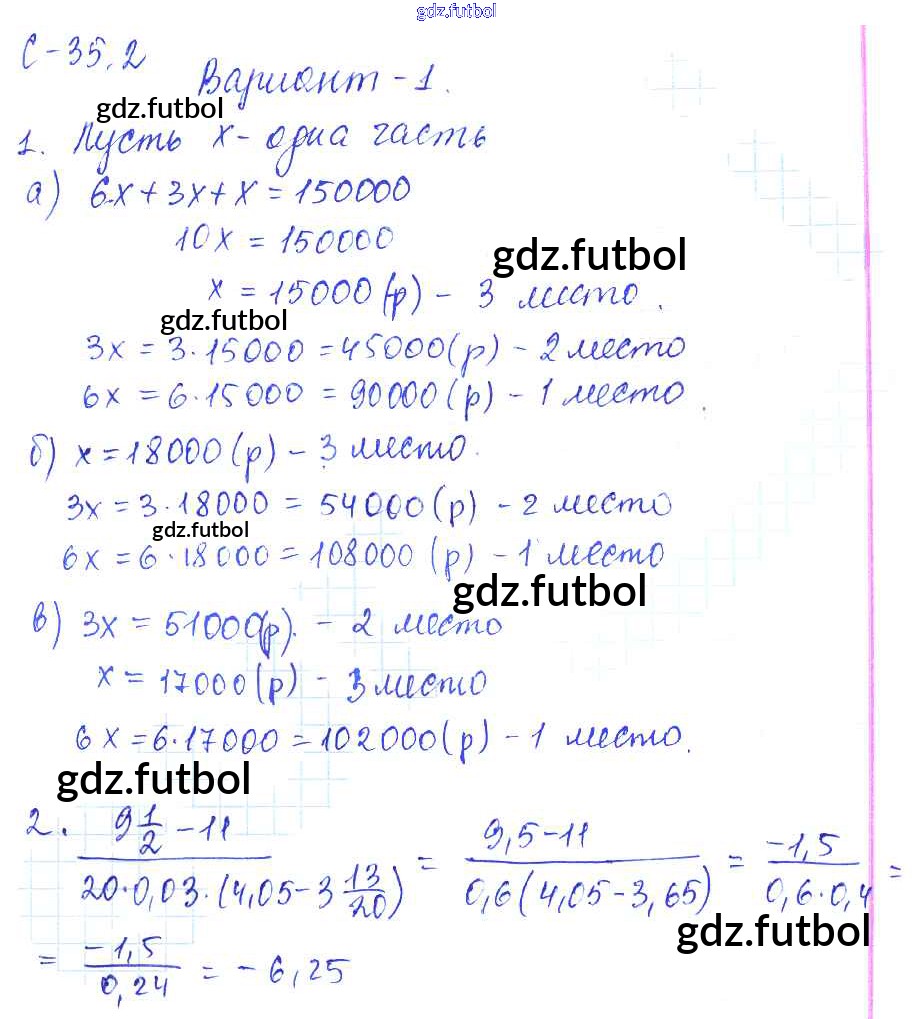 gdz.futbol
С-35.2
Вариант-1.
gdz.futbol
1. Пусть x - одна часть
а) 6x + 3x + x = 150000
10x = 150000
gdz.futbol
x = 15000 (р) - 3 место.
gdz.futbol
3x = 3·15000 = 45000 (р) - 2 место
6x = 6·15000 = 90000 (р) - 1 место.
б) x = 18000 (р) - 3 место.
3x = 3·18000 = 54000 (р) - 2 место
gdz.futbol
6x = 6·18000 = 108000 (р) - 1 место
gdz.futbol
в) 3x = 51000 (р). - 2 место
x = 17000 (р) - 3 место
6x = 6·17000 = 102000 (р) - 1 место.
gdz.futbol
2. (9 1/2 - 11) / (20·0,03·(4,05 - 3 13/20)) = (9,5 - 11) / (0,6 (4,05 - 3,65)) = (-1,5) / (0,6·0,4) =
gdz.futbol
= (-1,5) / (0,24) = -6,25